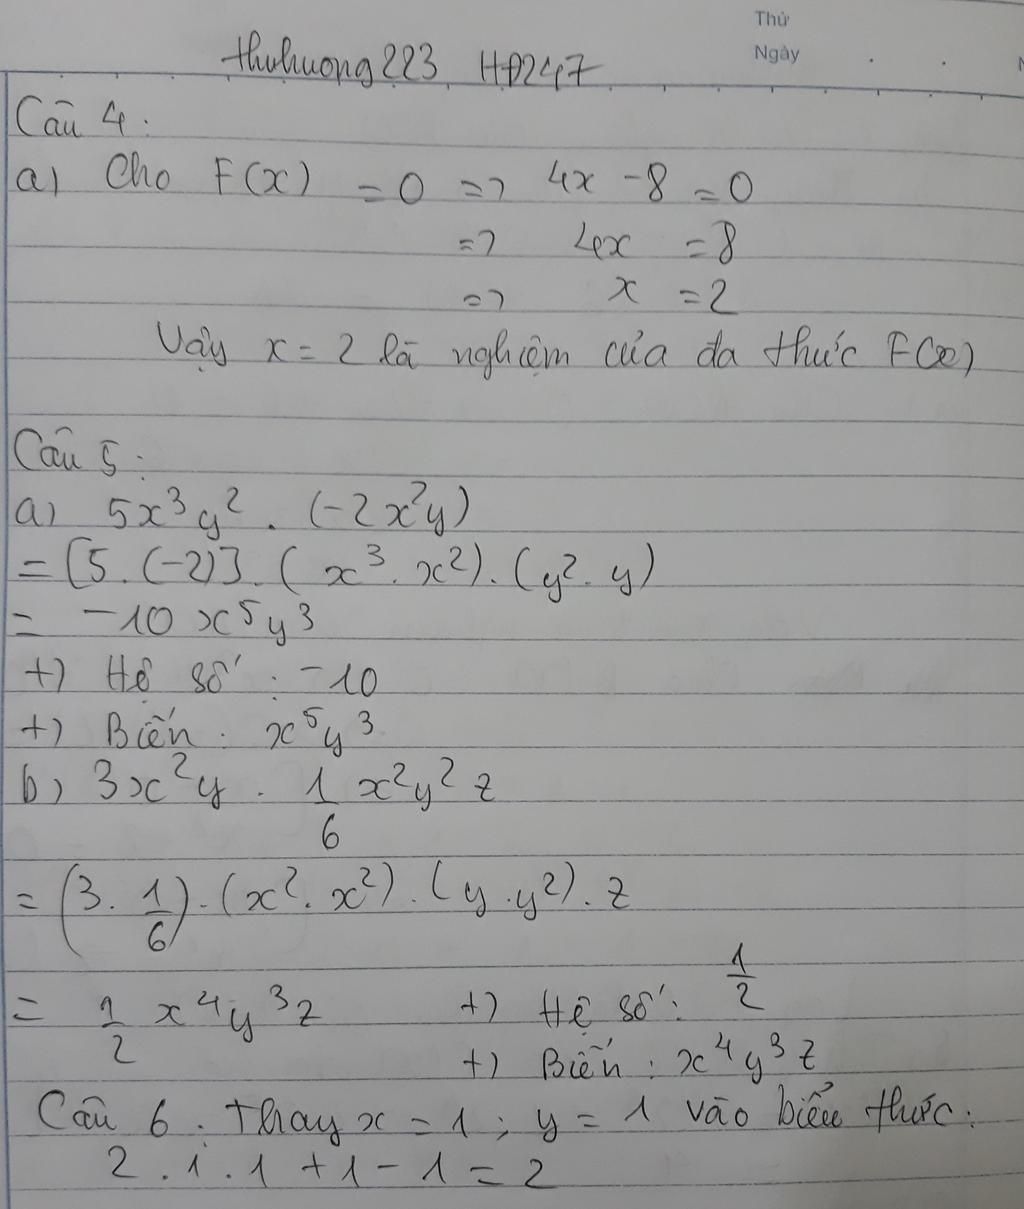 Thứ
Ngày
thuhuong223 HĐ247
Câu 4.
a) Cho F(x) = 0 => 4x - 8 = 0
=> 4x = 8
=> x = 2
Vậy x = 2 là nghiệm của đa thức F(x)
Câu 5:
a) 5x³y² . (-2x²y)
= [5.(-2)].(x³.x²).(y².y)
= -10x⁵y³
+) Hệ số: -10
+) Biến: x⁵y³
b) 3x²y . 1/6 x²y²z
= (3. 1/6).(x².x²).(y.y²).z
= 1/2 x⁴y³z +) Hệ số: 1/2
+) Biến: x⁴y³z
Câu 6. Thay x = 1; y = 1 vào biểu thức:
2.1.1 + 1 - 1 = 2